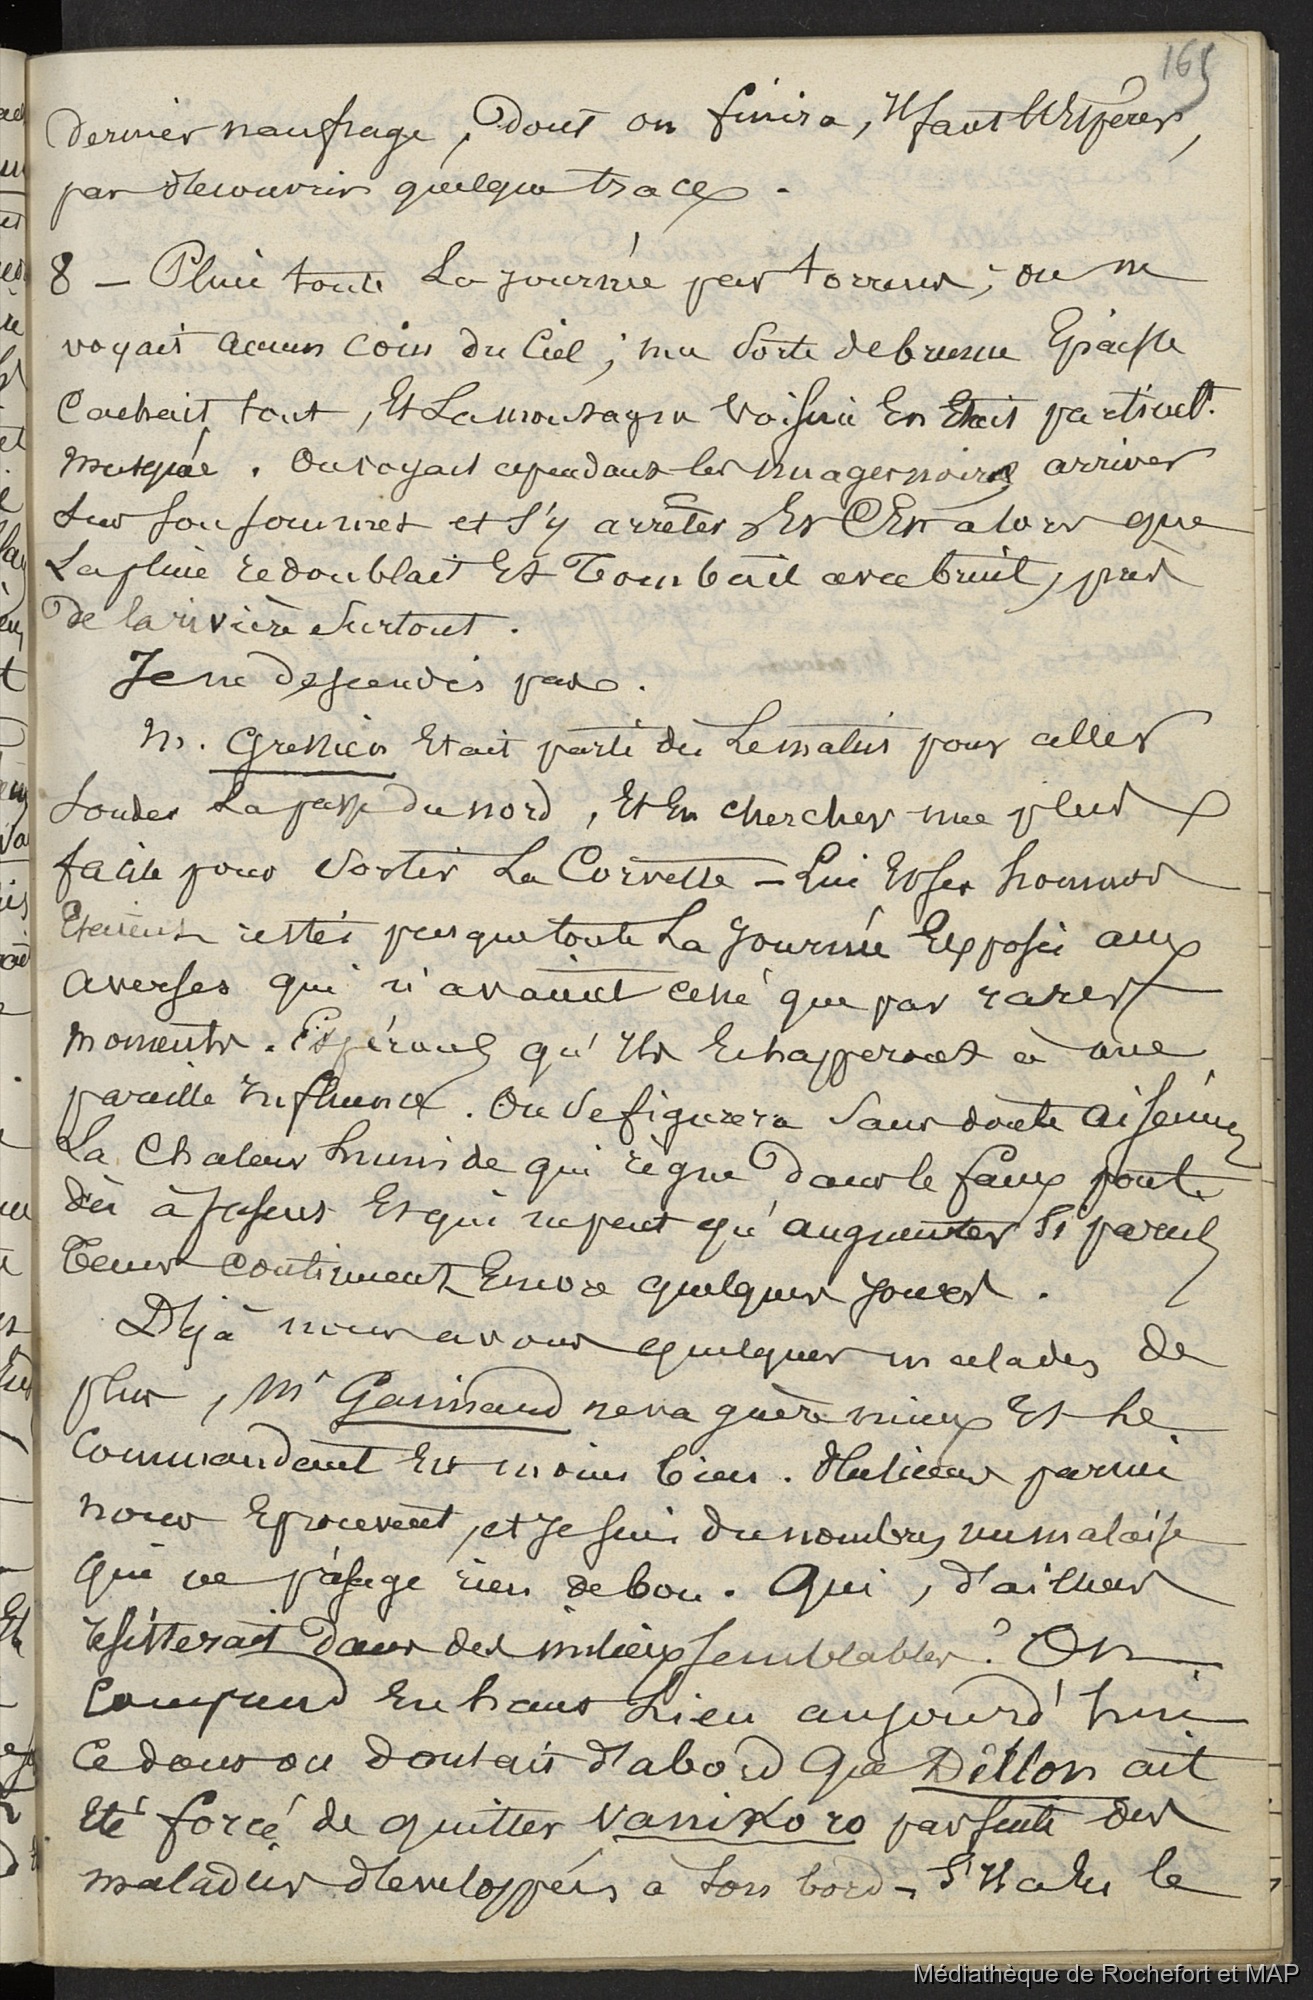 165
dernier naufrage, dont on finira, il faut l'espérer,
par découvrir quelque trace.
8 – Pluie toute la journée par torrens; on ne
voyait aucun coin du Ciel; une sorte de brume épaisse
cachait tout, et la montagne voisine en était partiellt.
masquée. On voyait cependant les nuages noirs arriver
sur son sommet et s'y arrêter, et c'est alors que
la pluie redoublait et tombait avec bruit, près
de la rivière surtout.
Je ne descendis pas.
M. Gressien était parti dès le matin pour aller
sonder la passe du nord, et en chercher une plus
facile pour sortir la Corvette – Lui et ses hommes
étaient restés presque toute la journée exposés aux
averses qui n'avaient cessé que par rares
moments. Espérons qu'ils échapperont à une
pareille influence. On se figurera sans doute aisément
la chaleur humide qui règne dans le faux pont
dès à présent et qui ne peut qu'augmenter si pareil
tems continuent encore quelques jours.
Déjà nous avons quelques malades de
plus, Mr Gaimard ne va guère mieux et le
Commandant est moins bien. Plusieurs parmi
nous éprouvent, et je suis du nombre, un malaise
qui ne présage rien de bon. Qui, d'ailleurs
résisterait dans des milieux semblables? On
comprend en haut lieu aujourd'hui
ce dont on doutait d'abord que Dillon ait
été forcé de quitter Vanikoro par suite des
maladies développées à son bord – S'il a eu le
Médiathèque de Rochefort et MAP